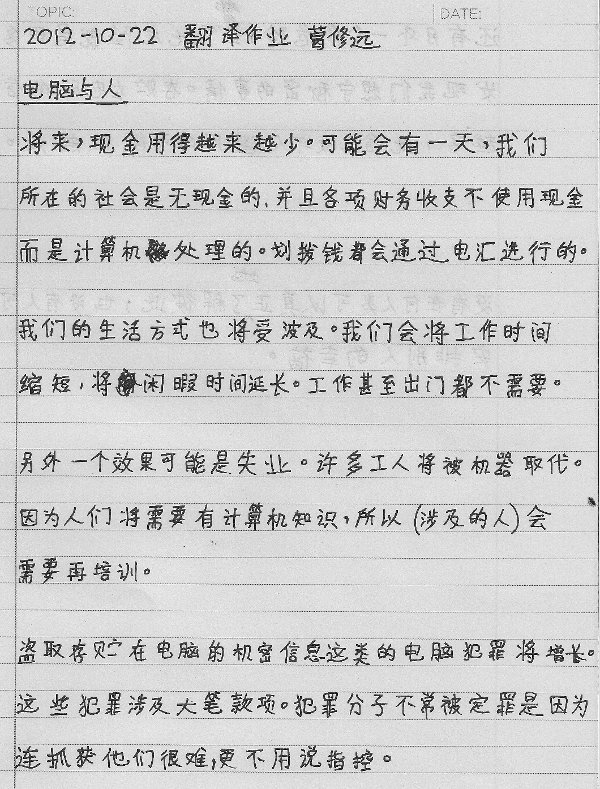 OPIC:
DATE:
2012-10-22 翻译作业 葛修远
电脑与人
将来，现金用得越来越少。可能会有一天，我们
所在的社会是无现金的，并且各项财务收支不使用现金
而是计算机处理的。划拨钱都会通过电汇进行的。
我们的生活方式也将受波及。我们会将工作时间
缩短，将闲暇时间延长。工作甚至出门都不需要。
另外一个效果可能是失业。许多工人将被机器取代。
因为人们将需要有计算机知识，所以（涉及的人）会
需要再培训。
盗取存贮在电脑的机密信息这类的电脑犯罪将增长。
这些犯罪涉及大笔款项。犯罪分子不常被定罪是因为
连抓获他们很难，更不用说指控。